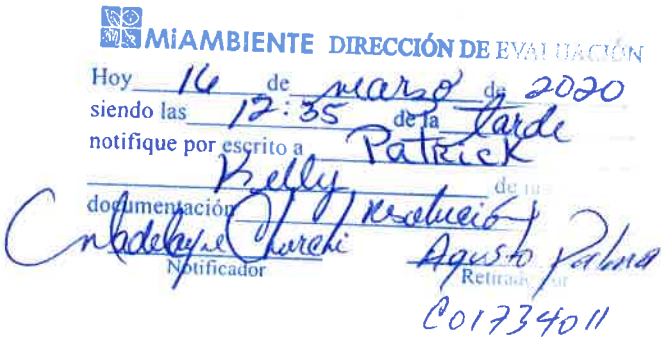 MiAMBIENTE DIRECCIÓN DE EVALUACIÓN
Hoy 16 de marzo de 2020
siendo las 12:35 de la tarde
notifique por escrito a Patrick
Kelly de la
documentación resolución
Notificador Agusto Palma
Retirado por
C01734011